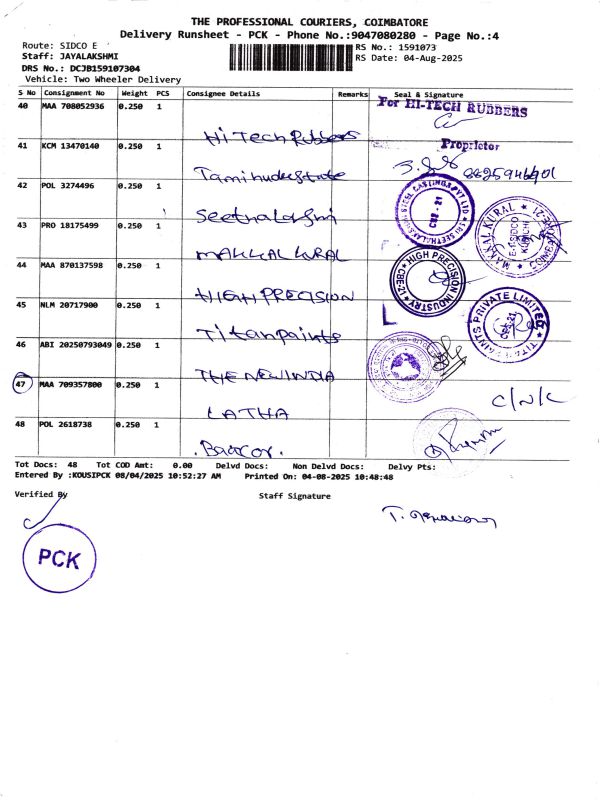 THE PROFESSIONAL COURIERS, COIMBATORE
Delivery Runsheet - PCK - Phone No.:9047080280 - Page No.:4
Route: SIDCO E
RS No.: 1591073
Staff: JAYALAKSHMI
RS Date: 04-Aug-2025
DRS No.: DCJB159107304
Vehicle: Two Wheeler Delivery
S No Consignment No Weight PCS Consignee Details Remarks Seal & Signature
40 MAA 708052936 0.250 1 Hi Tech Rubbers
For HI-TECH RUBBERS
Proprietor
41 KCM 13470140 0.250 1
42 POL 3274496 0.250 1 Seethalakshmi
43 PRO 18175499 0.250 1 MAKKAL KURAL
MAKKAL KURAL
44 MAA 870137598 0.250 1 HIGH PRECISION
HIGH PRECISION INDUSTRY
CBE-21
45 NLM 20717900 0.250 1 Titanpaints
TITAN PAINTS PRIVATE LIMITED
CBE-21
46 ABI 20250793049 0.250 1 THE NEW INDIA
47 MAA 709357800 0.250 1 LATHA
C/N/L
48 POL 2618738 0.250 1
Tot Docs: 48 Tot COD Amt: 0.00 Delvd Docs: Non Delvd Docs: Delvy Pts:
Entered By :KOUSIPCK 08/04/2025 10:52:27 AM Printed On: 04-08-2025 10:48:48
Verified By
Staff Signature
PCK